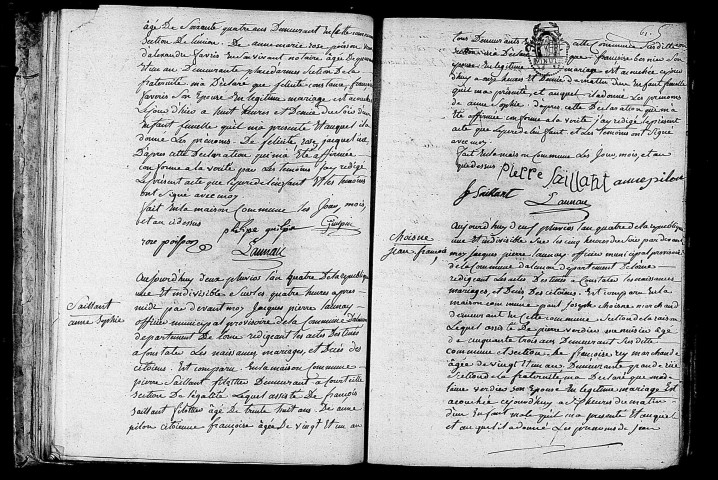 âgé De Soixante quatre ans Demeurant
Section De l'union. De anne marie rose poisson
d'alexandre Favris En son vivant notaire âgée De
Et un an Demeurante place darmes Section de la
fraternité ma Déclaré que félicité
favris son Epouse En legitime mariage est accouchée
cejourdhier a huit heures et Demie du Soir Dun
Enfant femelle quil ma presenté Et auquel il a
donné Les prenoms De félicité rose jacqueline
D'apres cette Déclaration qui ma Eté affirmée
conforme a la verité par Les temoins jay redigé
Le present acte que Le pere de l'enfant Et les temoins
ont Signé avec moy
fait En la maison Commune Les Jour, mois,
et an cidessus
rose poisson
Launai
Saillant
anne Sophie
Aujourdhuy deux pluviose l'an quatre De la republique
une Et indivisible Sur les quatre heures apres
midi par devant moy Jacques pierre Launay
officier municipal provisoire de la Commune
departement De Lorne redigeant les actes Destinés
a Constater Les naissances, mariages, et Deces des
citoiens. Est comparu En la maison Commune
pierre Saillant filotier Demeurant a Courteille
Section De l'egalité Lequel assisté De françois
Saillant filotier âgé De trente huit ans. De anne
pilon citoienne françoise âgée De vingt Et un an
61. 5
tous Demeurants cette Commune Susditte
Section, ma Déclaré que françoise Bernier Son
Epouse En legitime mariage est accouchée cejour
dhuy a onze heures et Demie du matin dun Enfant femelle
quil ma presenté, et auquel il a donné Les prenoms
de anne Sophie. D'apres cette Declaration qui ma
Eté affirmée conforme a la verité jay redigé Le present
acte que Le pere de l'enfant et des temoins ont Signé
avec moy.
fait En la maison Commune Les Jour, mois, et an
que dessus
Pierre Saillant anne pilon
f Saillant
Launai
Choisne
jean françois
Aujourdhuy deux pluviose l'an quatre de la republique
une Et indivisible Sur les cinq heures du Soir par devant
moy Jacques pierre Launay officier municipal provisoire
de la Commune dalencon departement de lorne
redigeant les actes Destinés a Constater Les naissances
mariages, et Deces Des citoiens. Est comparu En la
maison commune paul Joseph Choisne marchand
demeurant de Cette Commune Section de la raison
Lequel assisté De pierre Verdier menuisier âgé
de cinquante trois ans Demeurant Susditte
commune et section. De françoise rey marchande
âgée de vingt Et un ans Demeurante grande rue
Section de la fraternité, ma Déclaré que made
laine verdier Son Epouse En legitime mariage Est
accouchée cejourdhuy a Sept heures du matin
dun Enfant male quil ma presenté Et auquel
et au quil a donné Les prenoms de jean